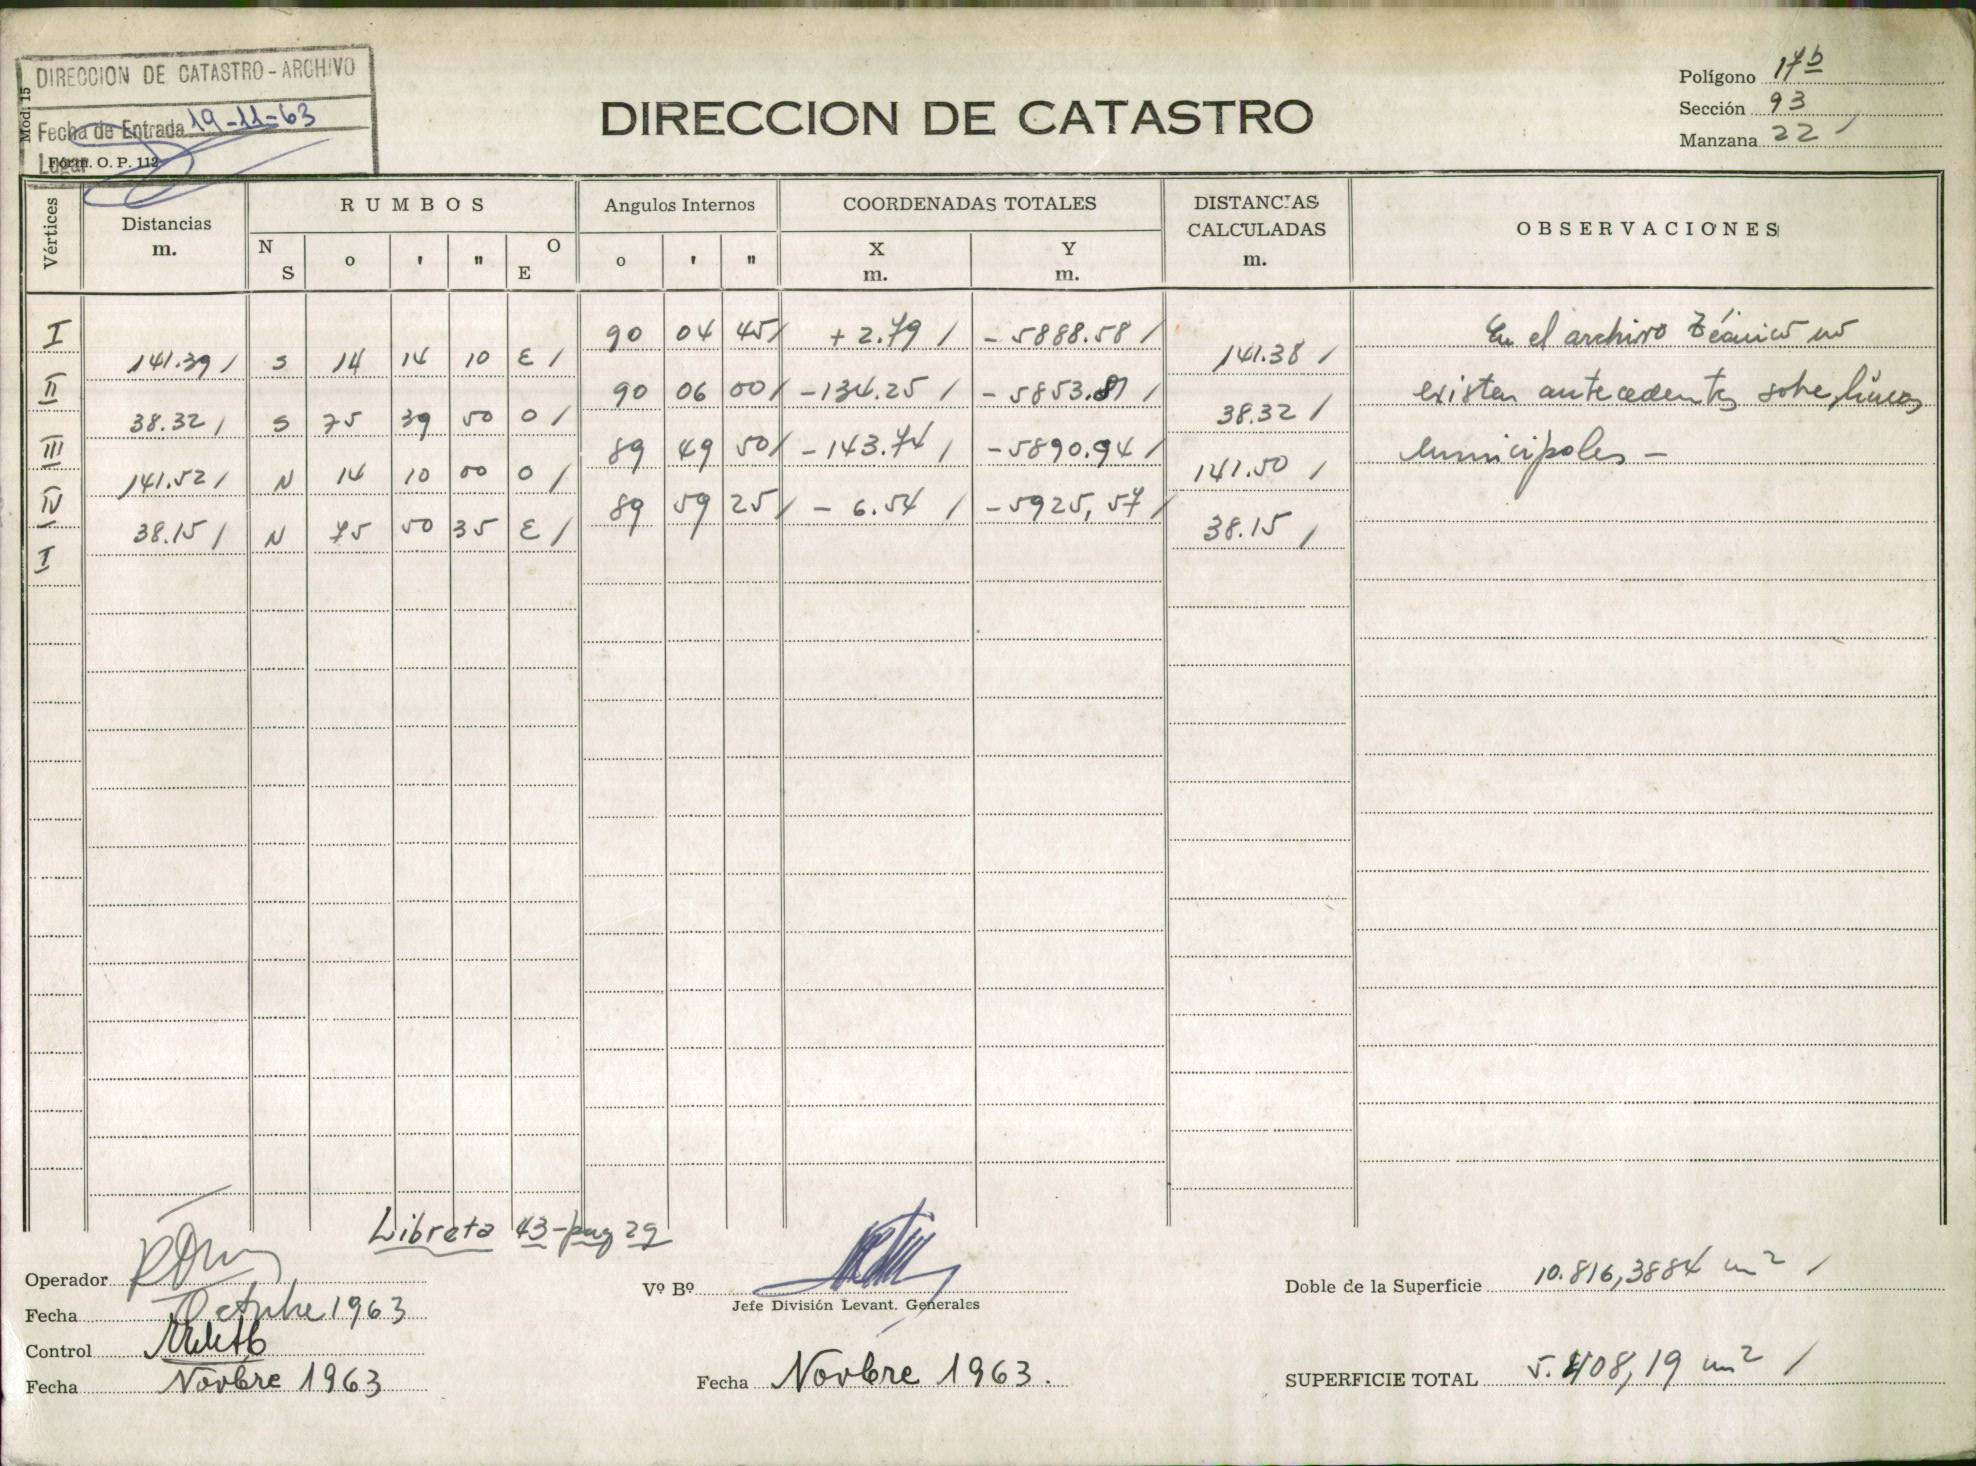 DIRECCION DE CATASTRO - ARCHIVO
Mod. 15
Fecha de Entrada 19-11-63
Lugar
Form. O. P. 112
DIRECCION DE CATASTRO
Polígono 17b
Sección 93
Manzana 22 /
Vértices
Distancias
m.
RUMBOS
N S
o
'
"
O E
Angulos Internos
o
'
"
COORDENADAS TOTALES
X
m.
Y
m.
DISTANCIAS
CALCULADAS
m.
OBSERVACIONES
I 90 04 45 / + 2.79 / - 5888.58 / En el archivo Técnico no
141.39 / S 14 14 10 E / 141.38 /
II 90 06 00 / - 134.25 / - 5853.81 / existen antecedentes sobre líneas
38.32 / S 75 39 50 O / 38.32 /
III 89 49 50 / - 143.74 / - 5890.94 / municipales -
141.52 / N 14 10 00 O / 141.50 /
IV 89 59 25 / - 6.54 / - 5925,57 /
38.15 / N 75 50 35 E / 38.15 /
I
Libreta 43-pag 29
Operador
Fecha Octubre 1963
Control
Fecha Novbre 1963
Vº Bº
Jefe División Levant. Generales
Fecha Novbre 1963.
Doble de la Superficie 10.816,3884 m² /
SUPERFICIE TOTAL 5.408,19 m² /